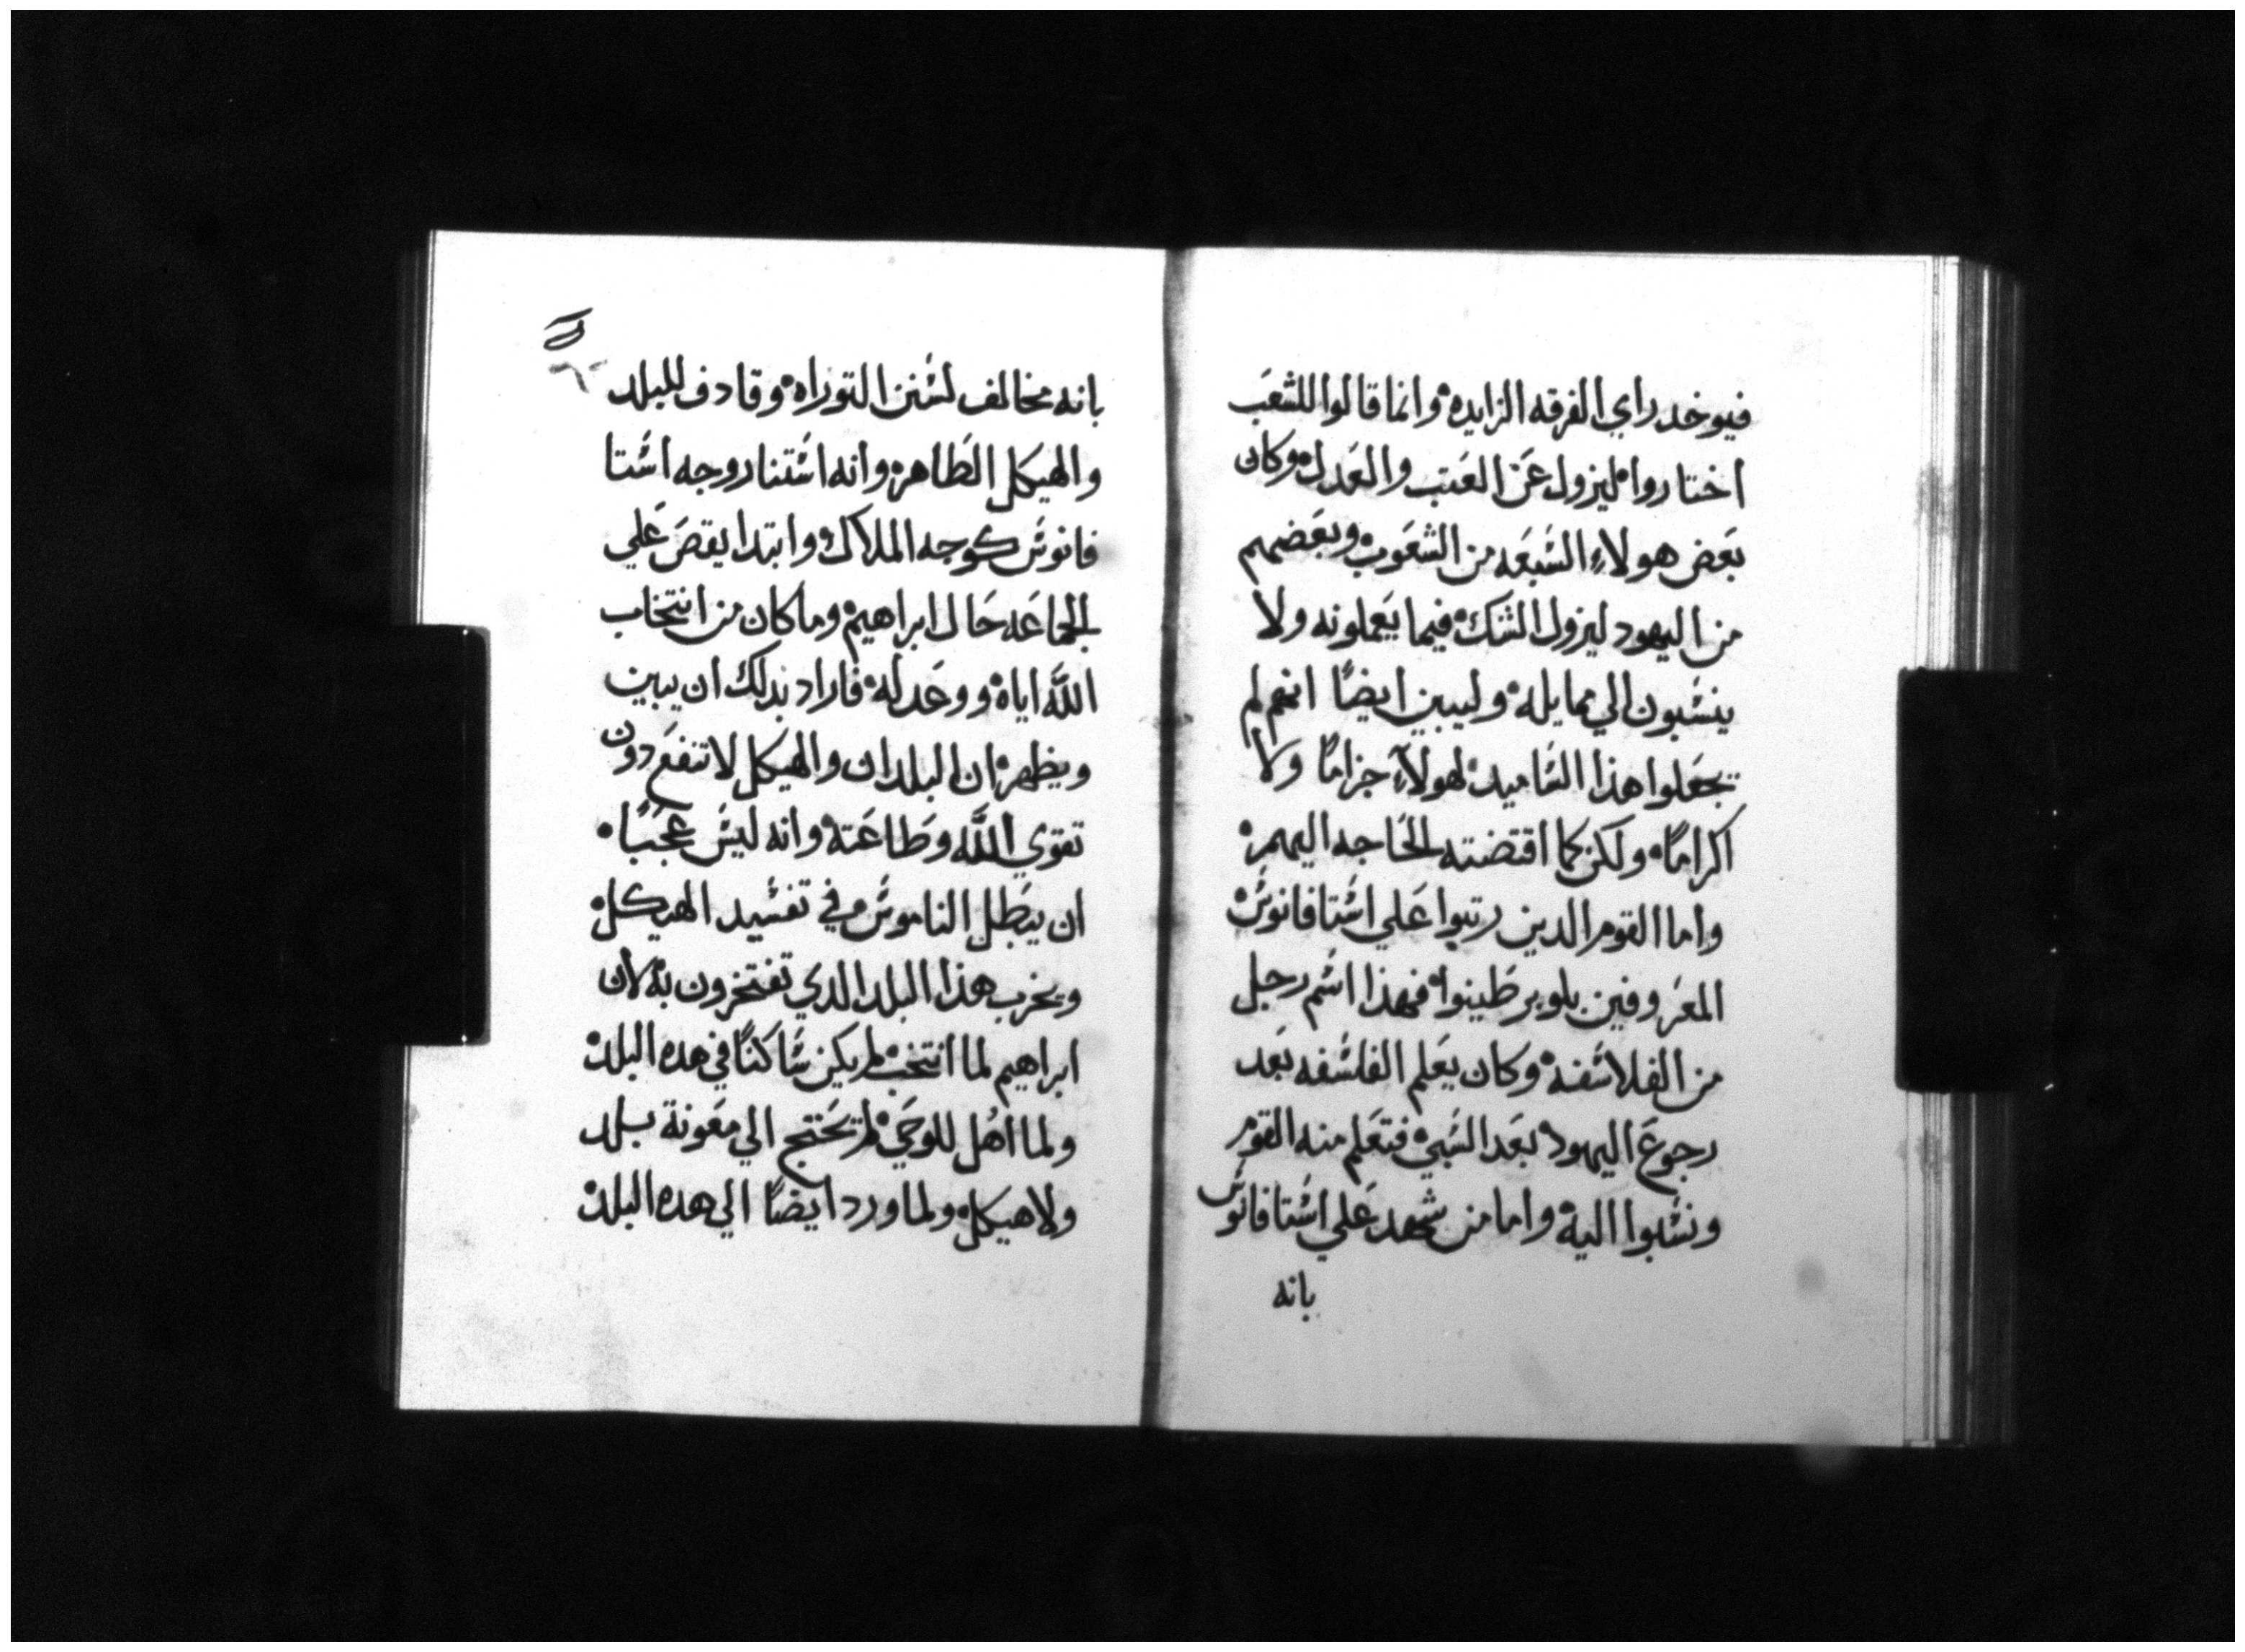 فيوخد راي الفرقه الزايده وانما قالوا للشعب
اختاروا ليزول عن العتب والعدل وكان
بعض هولاء السبعه من الشعوب وبعضهم
من اليهود ليزول الشك فيما يعملونه ولا
ينسبون الي ممايله وليبين ايضًا انهم لم
يجعلوا هذا التاميد لهولاء جزامًا ولا
اكرامًا ولكن كما اقتضته الحاجه اليهم
واما القوم الدين رتبوا علي اشتافانوس
المعروفين بلوبرطينوا فهذا اسم رجل
من الفلاسفه وكان يعلم الفلسفه بعد
رجوع اليهود بعد السبي فتعلم منه القوم
ونسبوا اليه واما من شهد علي اشتافانوس
بانه
بانه مخالف لسنن التوراه وقادف للبلد
والهيكل الطاهر وانه استنار وجه اشتا
فانوس كوجه الملاك وابتدا يقص علي
الجماعه حال ابراهيم وما كان من انتخاب
اللّه اياه ووعد له فاراد بدلك ان يبين
ويظهر ان البلدان والهيكل لا تنفع دون
تقوي اللّه وطاعته وانه ليس عجبًا
ان يبطل الناموس وفي تفسيد الهيكل
ويخرب هذا البلد الدي تفتخرون به لان
ابراهيم لما انتخب لم يكن ساكنًا في هده البلد
ولما اهل للوحي لم تحتج الي معونة بلد
ولا هيكل ولما ورد ايضًا الي هده البلد